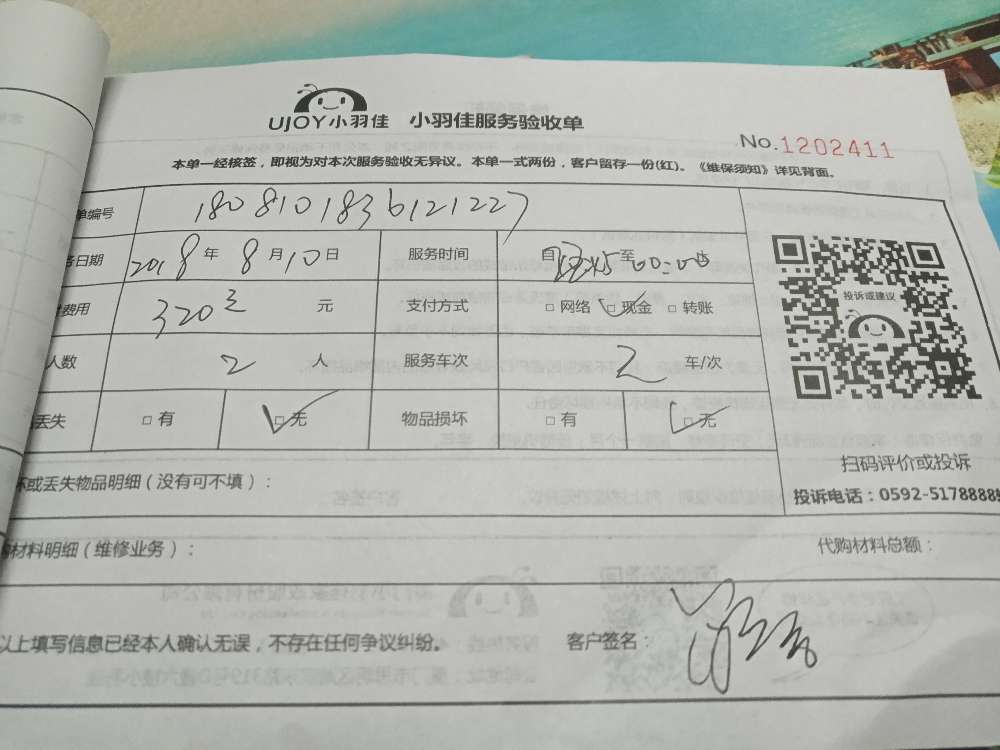 UJOY小羽佳 小羽佳服务验收单
No.1202411
本单一经核签，即视为对本次服务验收无异议。本单一式两份，客户留存一份(红)。《维保须知》详见背面。
单编号 1808101836121227
务日期 2018年8月10日 服务时间 自 至00:00
费用 320 元 支付方式 □网络 □现金 □转账
人数 2 人 服务车次 2 车/次
丢失 □有 □无 物品损坏 □有 □无
投诉或建议
扫码评价或投诉
投诉电话：0592-5178888
坏或丢失物品明细（没有可不填）：
材料明细（维修业务）： 代购材料总额：
以上填写信息已经本人确认无误，不存在任何争议纠纷。 客户签名：